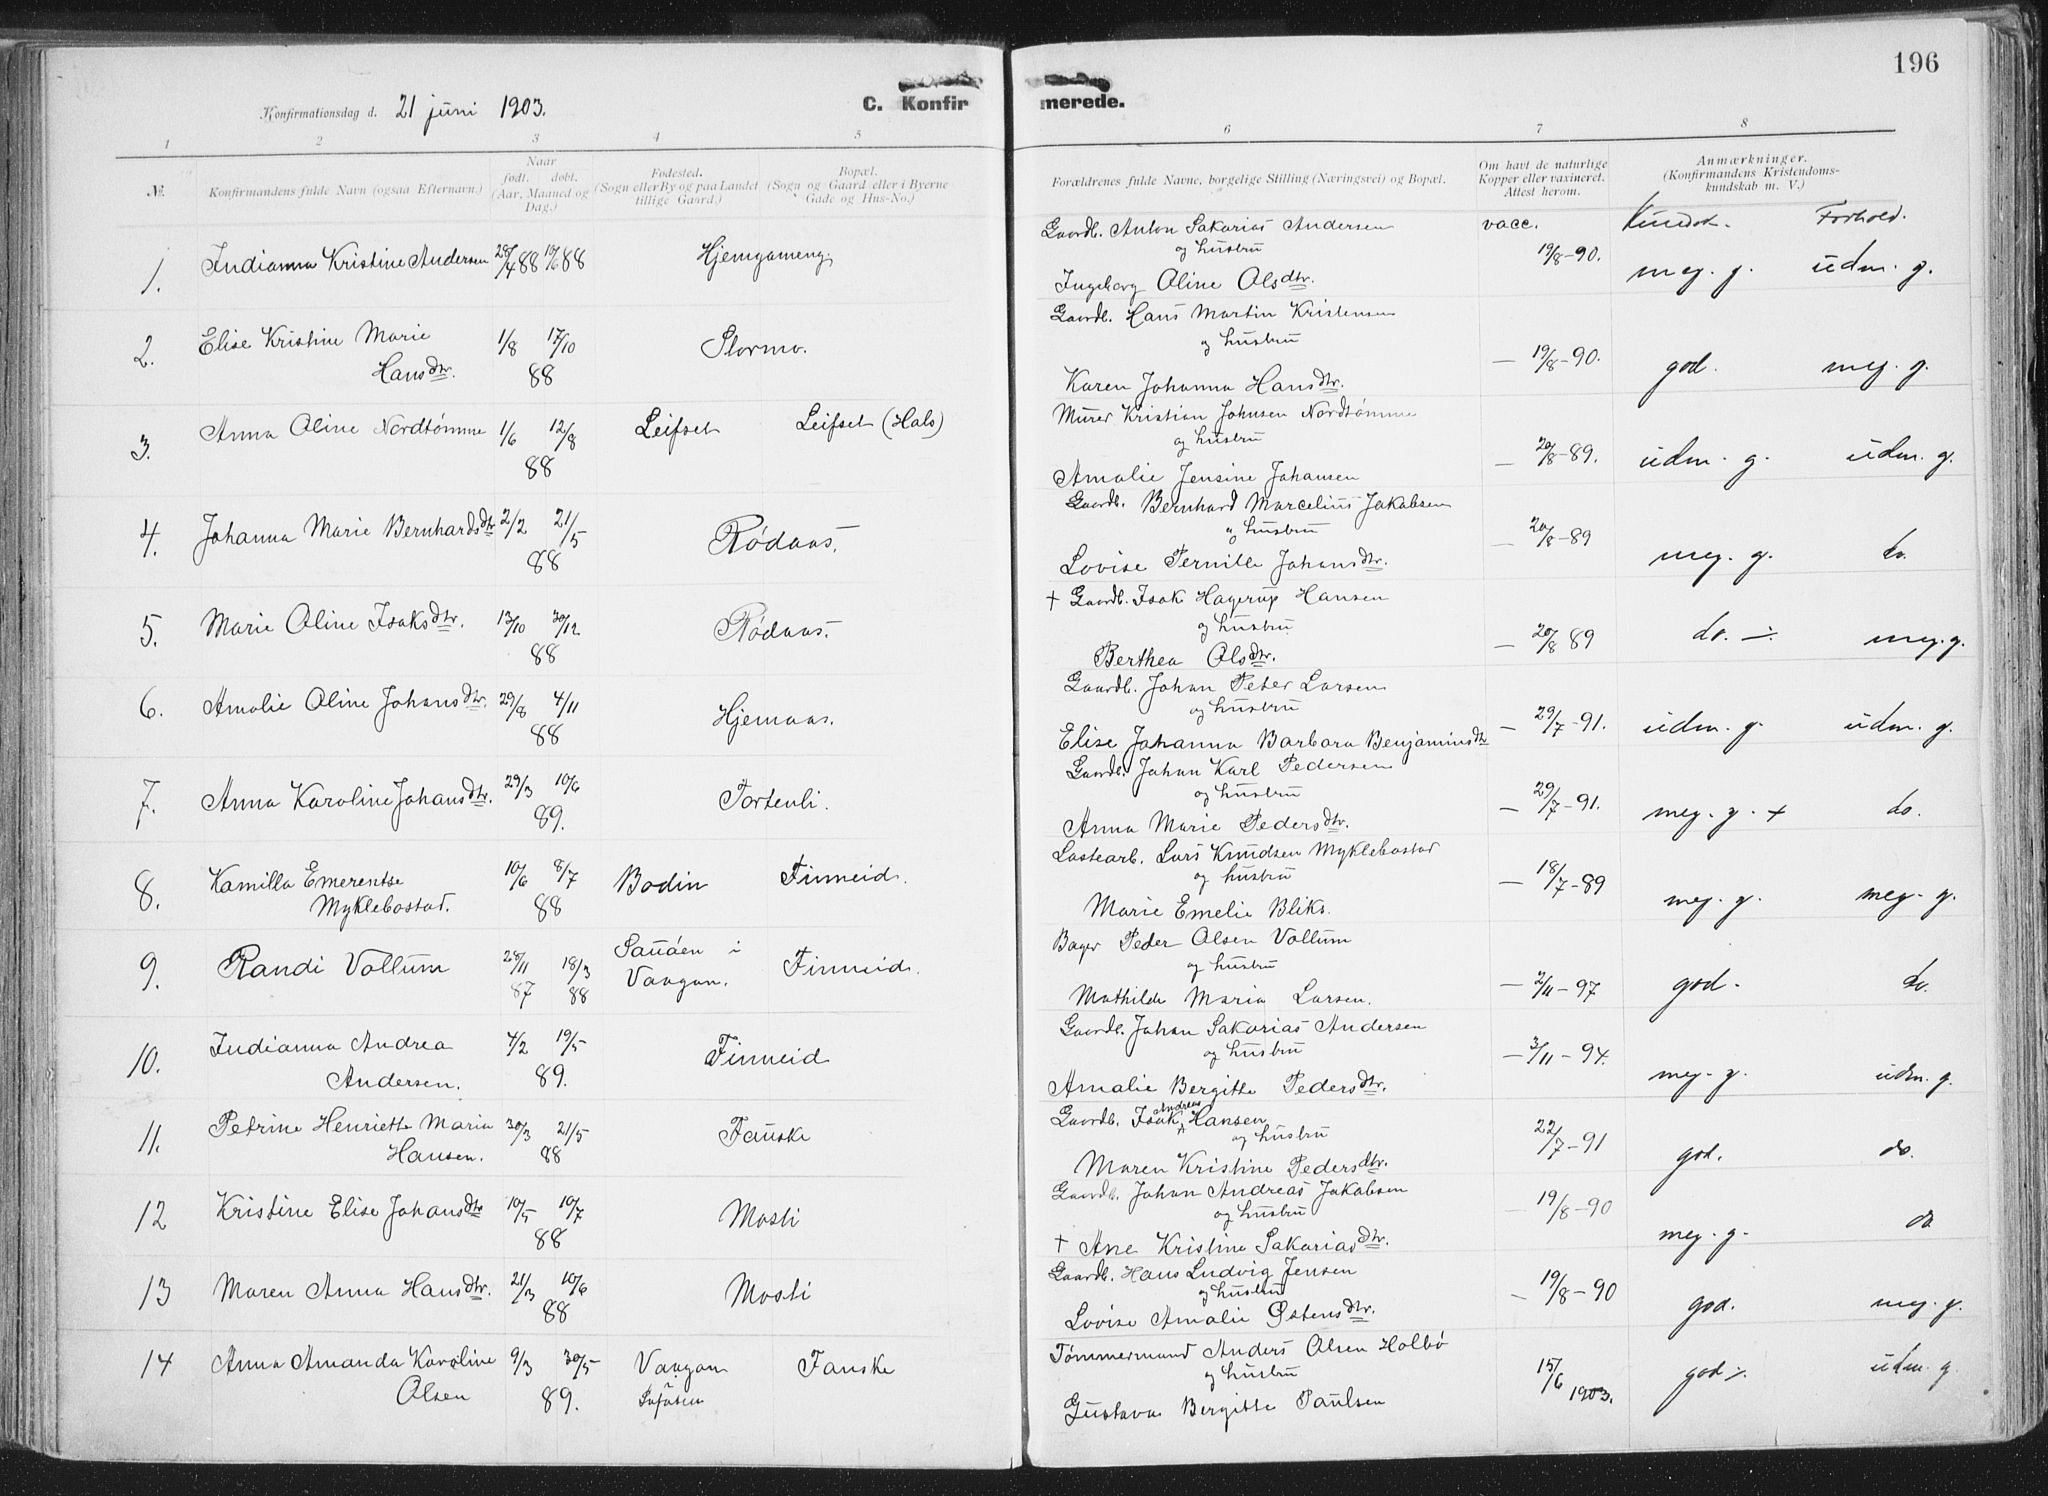 196
Konfirmationsdag d. 21 juni 1903.
C. Konfirmerede.
1 2 3 4 5 6 7 8
№.
Konfirmandens fulde Navn (ogsaa Efternavn.)
Naar
født. døbt.
(Aar, Maaned og Dag.)
Fødested.
(Sogn eller By og paa Landet tillige Gaard.)
Bopæl.
(Sogn og Gaard eller i Byerne Gade og Hus-No.)
Forældrenes fulde Navne, borgelige Stilling (Næringsvei) og Bopæl.
Om havt de naturlige Kopper eller vaxineret. Attest herom.
Anmærkninger.
(Konfirmandens Kristendoms-kundskab m. V.)
vacc. Kundsk. Forhold.
1. Indianna Kristine Andersen 28/4 88 10/6 88 Hjemgameng.
Gaardb. Anton Sakarias Andersen
og hustru
Ingeborg Oline Olsdtr.
19/8-90. meg. g. udm. g.
2. Elise Kristine Marie
Hansdtr.
1/8 17/10
88
Stormo.
Gaardb. Hans Martin Kristensen
og hustru
Karen Johanna Hansdtr.
— 19/8-90. god. meg. g.
3. Anna Oline Nordtømme 1/6 12/8
88
Leifset Leifset (Hals)
Murer Kristian Johnsen Nordtømme
og hustru
Amalie Jensine Johansen
— 20/8-89. udm. g. udm. g.
4. Johanna Marie Bernhardsdtr 2/2 21/5
88
Rødaas.
Gaardb. Bernhard Marcelius Jakobsen
og hustru
Lovise Pernille Johansdtr.
— 20/8-89 meg. g. do.
5. Marie Oline Isaksdtr. 13/10 30/12
88
Rødaas.
† Gaardb. Isak Hagerup Hansen
og hustru
Berthea Olsdtr.
— 20/8 89 do. -:- meg. g.
6. Amalie Oline Johansdtr. 29/8 4/11
88
Hjemaas.
Gaardb. Johan Peter Larsen
og hustru
Elise Johanna Barbara Benjaminsdtr
— 29/7-91. udm. g. udm. g.
7. Anna Karoline Johansdtr. 29/3 10/6
89.
Tortenli.
Gaardb. Johan Karl Pedersen
og hustru
Anna Marie Pedersdtr.
— 29/7-91. meg. g. + do.
8. Kamilla Emerentse
Myklebostad.
10/6 8/7
88
Bodin Finneid.
Lastearb. Lars Knudsen Myklebostad
og hustru
Marie Emelie Bliks.
— 18/7-89 meg. g. meg. g.
9. Randi Vollum 28/11 18/3
87 88
i
Vaagan. Finneid.
Bager Peder Olsen Vollum
og hustru
Mathilde Maria Larsen.
— 2/11-97 god. do.
10. Indianna Andrea
Andersen.
4/2 19/5
89.
Finneid
Gaardb. Johan Sakarias Andersen
og hustru
Amalie Bergitte Pedersdtr.
— 3/11-94. meg. g. udm. g.
11. Petrine Henriette Maria
Hansen.
30/3 21/5
88
Fauske
Gaardb. Isak Andreas Hansen
og hustru
Maren Kristine Pedersdtr.
22/7-91 god. do.
12 Kristine Elise Johansdtr 10/5 10/7
88
Mosti
Gaardb. Johan Andreas Jakobsen
og hustru
† Ane Kristina Sakariasdtr.
— 19/8-90 meg. g. do
13 Maren Anna Hansdtr. 21/3 10/6
88
Mosti
Gaardb. Hans Ludvig Jensen
og hustru
Lovise Amalie Østensdtr.
— 19/8-90 god. meg. g.
14 Anna Amanda Karoline
Olsen
9/3 30/5
89.
Vaagan
i
Fauske
Tømmermand Anders Olsen Holbø
og hustru
Gustava Bergitte Paulsen
15/6 1903. god -:- udm. g.